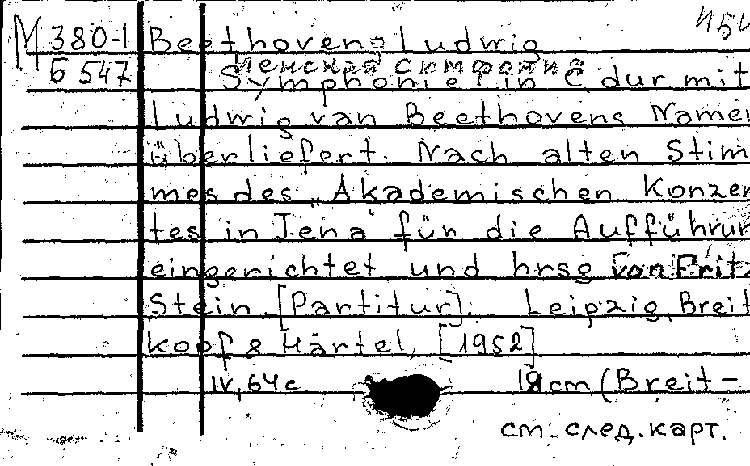 М 380-1 Beethovens Ludwig
Б 547 Йенская симфония
Symphonie in C dur mit
Ludwig van Beethovens Namen
überliefert. Nach alten Stim
mes des „Akademischen Konzer
tes in Jena" für die Aufführun
eingerichtet und hrsg von Fritz
Stein [Partitur]. Leipzig, Breit
kopf & Härtel, [1952]
IV, 64 c 19 cm (Breit-
см. след. карт.